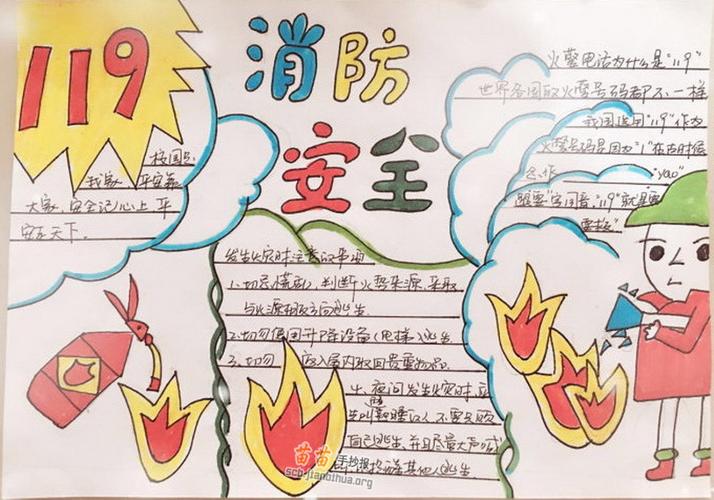 119
消防
安全
校园是
我家 平安靠
大家,安全记心上 平
安在天下.
火警电话为什么是"119"
世界各国取火警号码都不一样
我国选用"119"作为
火警号码是因为"1"在古时候
念作 "yao"
跟"要"字同音,"119"就是要
要救"
发生火灾时注意的事项
1.切忌慌乱,判断火势来源,采取
与火源相反方向逃生
2.切勿使用升降设备(电梯)逃生
3.切勿 返入屋内取回贵重物品.
4、夜间发生火灾时,应
先叫醒熟睡的人,不要只顾
自己逃生,并且尽量大声喊
其他人逃生
苗苗手抄报
scb.jianbihua.org